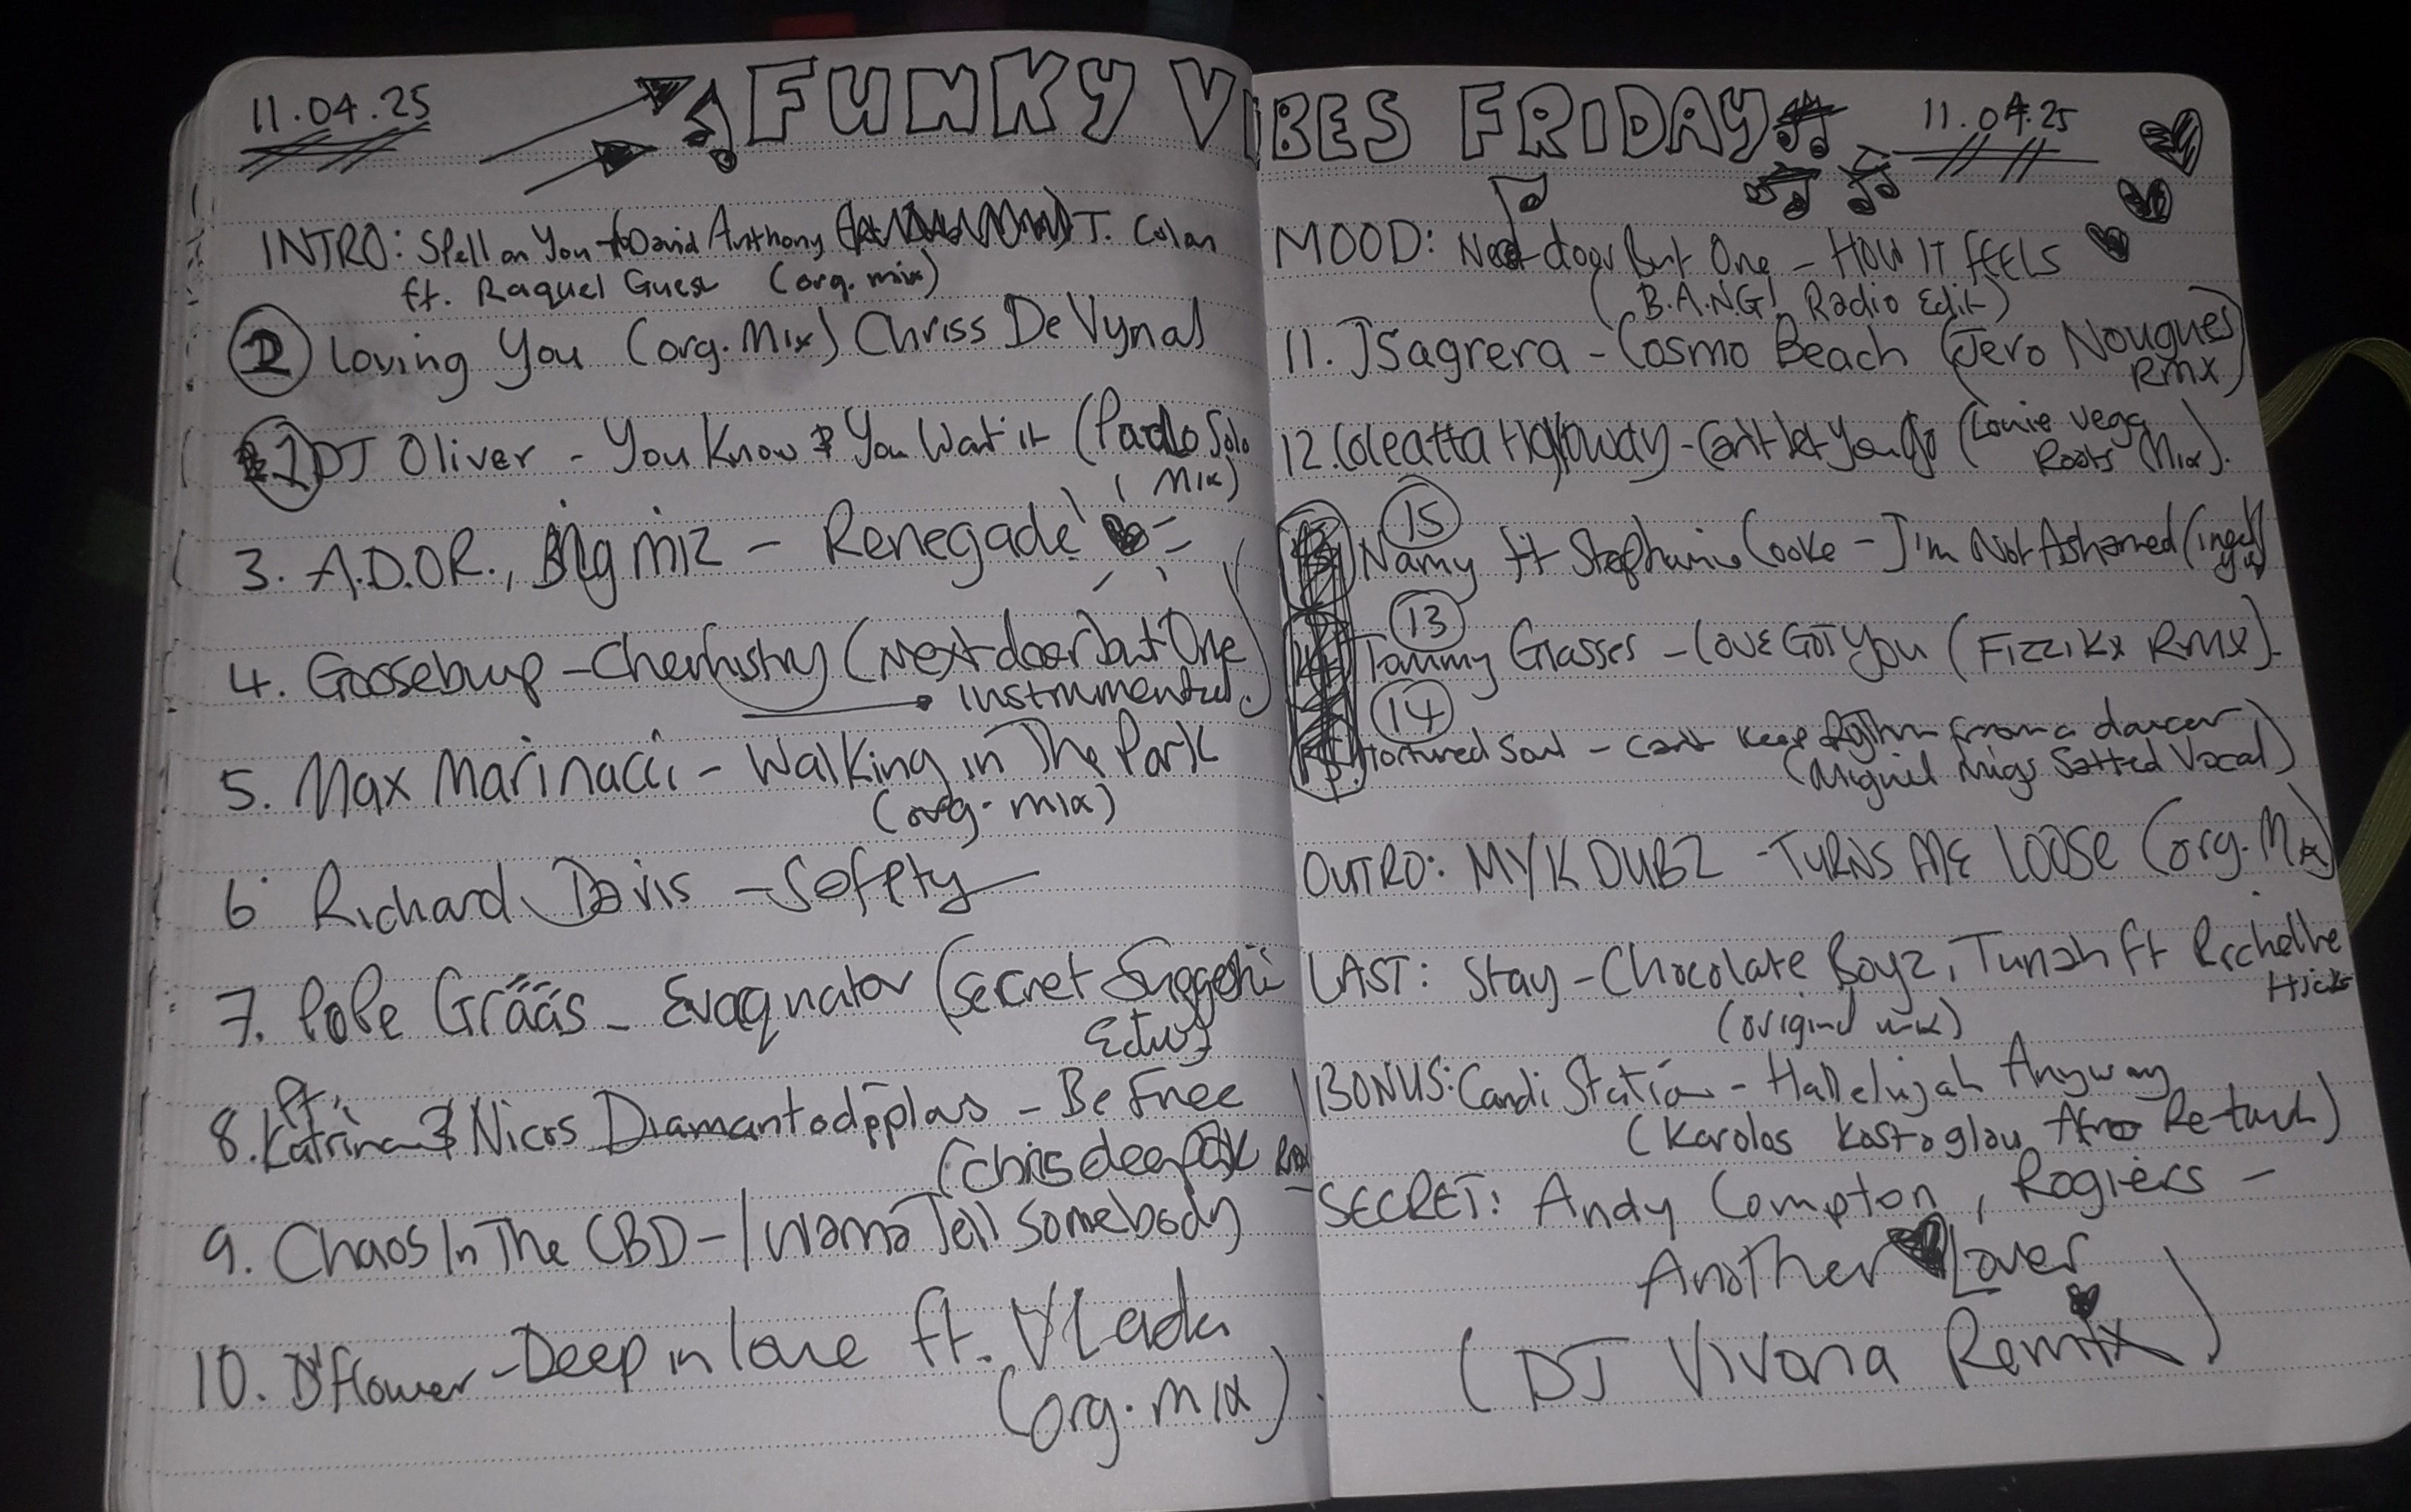 11.04.25
FUNKY VIBES FRIDAY
11.04.25
INTRO: Spell on You David Anthony, T. Colan
ft. Raquel Guess (org. mix)
2 Loving You (org. Mix) Chriss DeVynal
1 DJ Oliver - You Know You Want it (Paolo Solo
Mix)
3. A.D.O.R., Big Miz - Renegade
4. Goosebump - Chemistry (Next door but One
instrumental)
5. Max Marinacci - Walking in The Park
(org. mix)
6 Richard Davis - Safety
7. Pope Grääs - Evaquator (Secret
8. Katrina & Nicos - Be Free
(Chrisdeepak
9. Chaos In The CBD - I Wanna Tell Somebody
10. D'flower - Deep in love ft. VLada
(org. mix).
MOOD: Next door But One - HOW IT FEELS
(B.A.N.G! Radio Edit)
11. JSagrera - Cosmo Beach (Jero Nougues
Rmx)
12. Coleatta Holloway - Can't let You Go (Louie Vega
Roots Mix).
15
Namy ft Stephanie Cooke - I'm Not Ashamed
13
Tommy Glasses - LOVE GOT YOU (FIZZIKX RMX).
14
Tortured Soul - Can't Keep from a dancer
(Miguel Migs Salted Vocal)
OUTRO: MYK DUBZ - TURNS ME LOOSE (org. Mix)
LAST: Stay - Chocolate Boyz, Tunah ft Richelle
Hicks
(original mix)
BONUS: Candi Station - Hallelujah Anyway
(Karolos Kastoglou Afro Re-touch)
SECRET: Andy Compton, Rogiérs -
Another Lover
(DJ Vivona Remix)